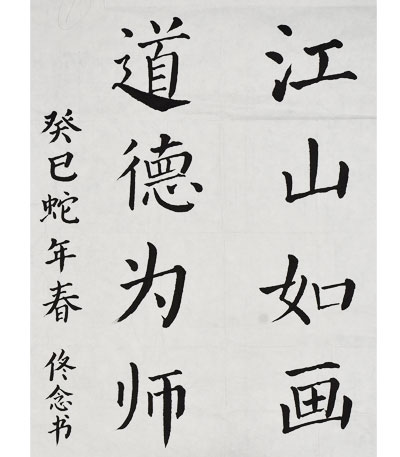 江山如画
道德为师
癸巳蛇年春 佟念书